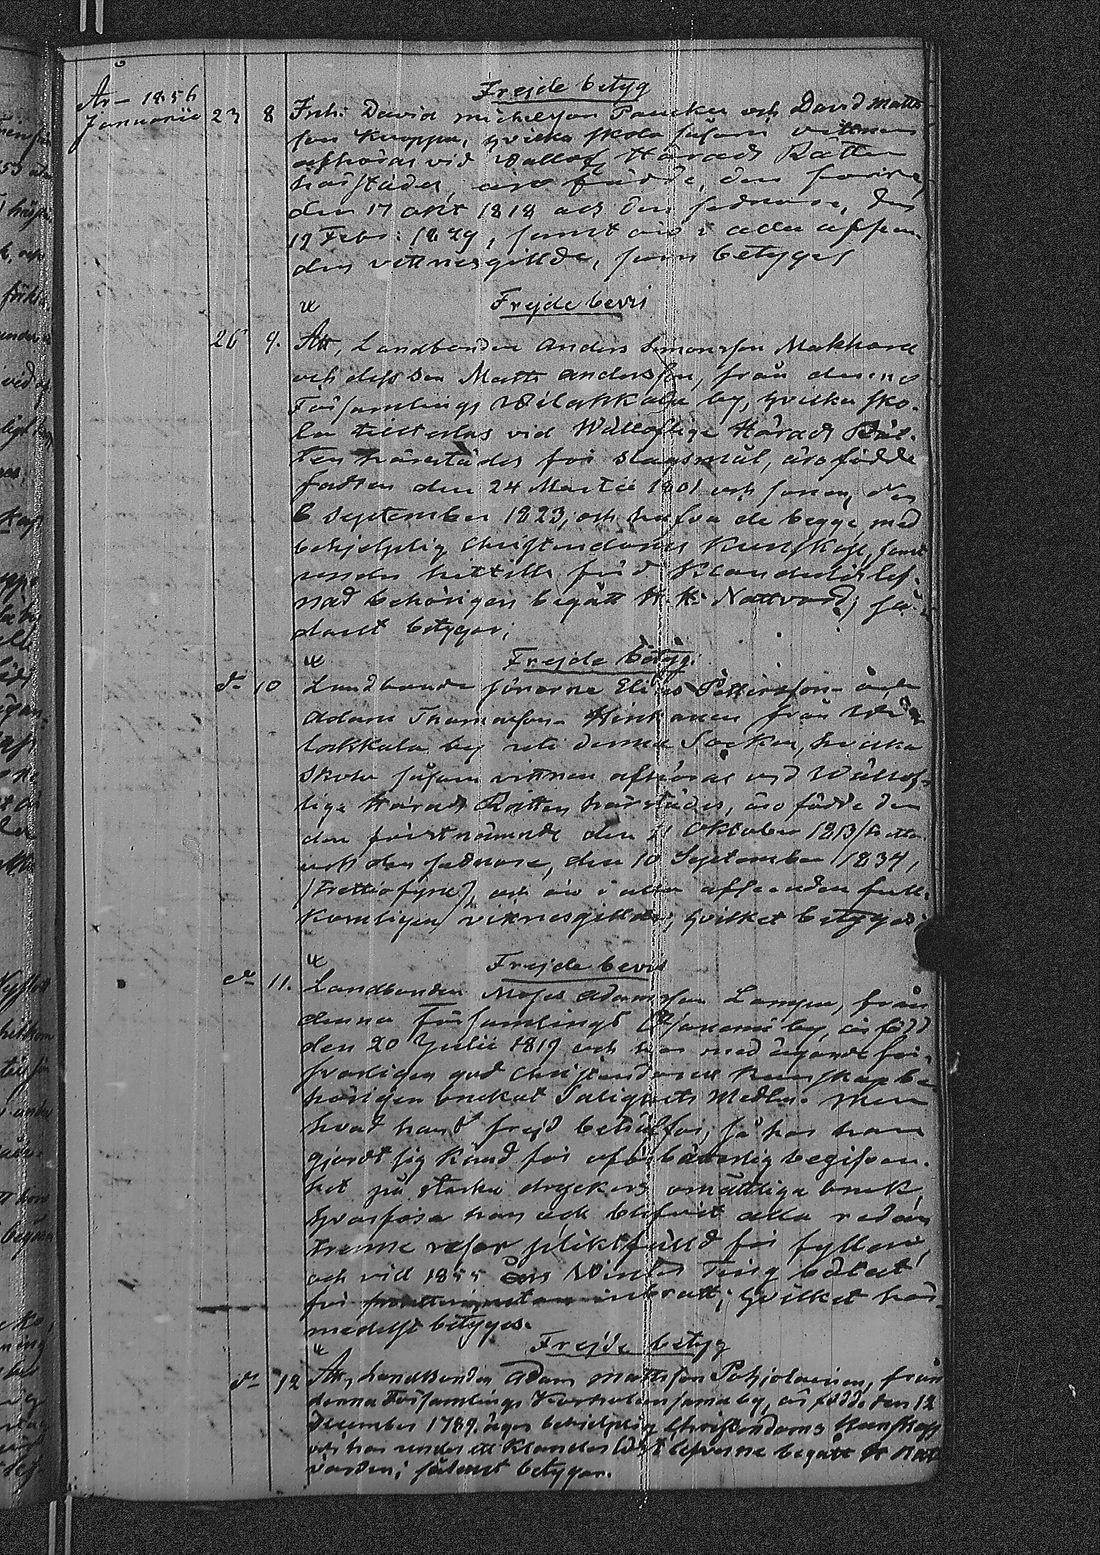 Frejde betyg
År 1856
Januarii 23 8 Inh: David Michelsson Pauckku och David Matts-
son Kruppa, hvilka skola såsom vittnen
afhöras vid Wällofl. Härads Rätten
härstädes, äro födde, den förre,
den 17 Okt 1818 och den sednare, den
12 Febr: 1829, samt äro i alla afseen-
den vittnesgillde, som betyges
Frejdebevis
26 9. Att, Landbonden Anders Simonsson Makkone
och dess son Matts Andersson, från denne
Församlings Wilakkala by, hvilka sko-
la tilltalas vid Wälloflige Härads Rät-
ten härstädes för slagsmål, äro födde
fadren den 24 Martii 1801 och sonen den
6 September 1823, och hafva de begge med
behjelplig Christendoms Kunskap, samt
under hittills förd Klanderlös lef-
nad behörigen begått H. H. Nattvard; så-
dant betygar.
Frejde betyg.
d:o 10 Landbonde sönerne Elias Pettersson och
Adam Thomasson Hinkanen från
lakkala by uti denna Socken, hvilka
skola såsom vittnen afhöras vid Wällof-
lige Härads Rätten härstädes, äro födde den
den förstnämnde den 21 Oktober 1813
och den sednare, den 10 September 1834,
(trettiofyra), och äro i alla afseenden full-
komligen vittnesgillde; hvilket betyges.
Frejde bevis
d:o 11. Landbonden Moses Adamsson Lampu, från
denna Församlings by, är född
den 20 Julii 1819 och har med ägande för-
svarligen god Christendoms Kunskap be-
hörigen brukat Salighets Medlen. Men
hvad hans frejd beträffar, så har han
gjordt sig känd för oförbätterlig begifven-
het på starka dryckers omåttliga bruk,
hvarföre han ock blifvit alla redan
trenne resor pliktfälld för fylleri,
och vid 1855 års Winter Ting bötat
för inbrott; hvilket här-
medelst betyges.
Frejde betyg
d:o 12 Att, Landbonden Adam Mattsson Pohjolainen, från
denna Församlings by, är född den 12
December 1789, äger behjelplig Christendoms Kunskap
och har under ett Klanderlöst lefverne begått H. Natt-
varden; sådant betygar.